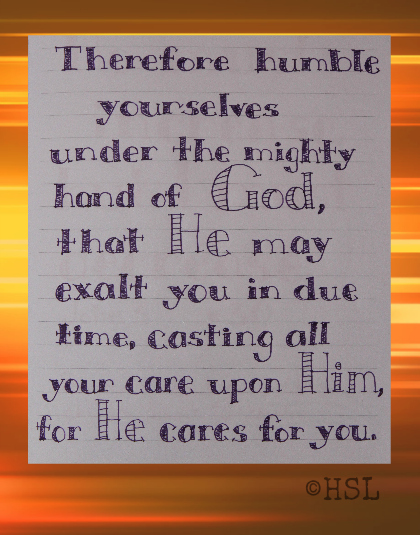 Therefore humble
yourselves
under the mighty
hand of God,
that He may
exalt you in due
time, casting all
your care upon Him,
for He cares for you.
©HSL